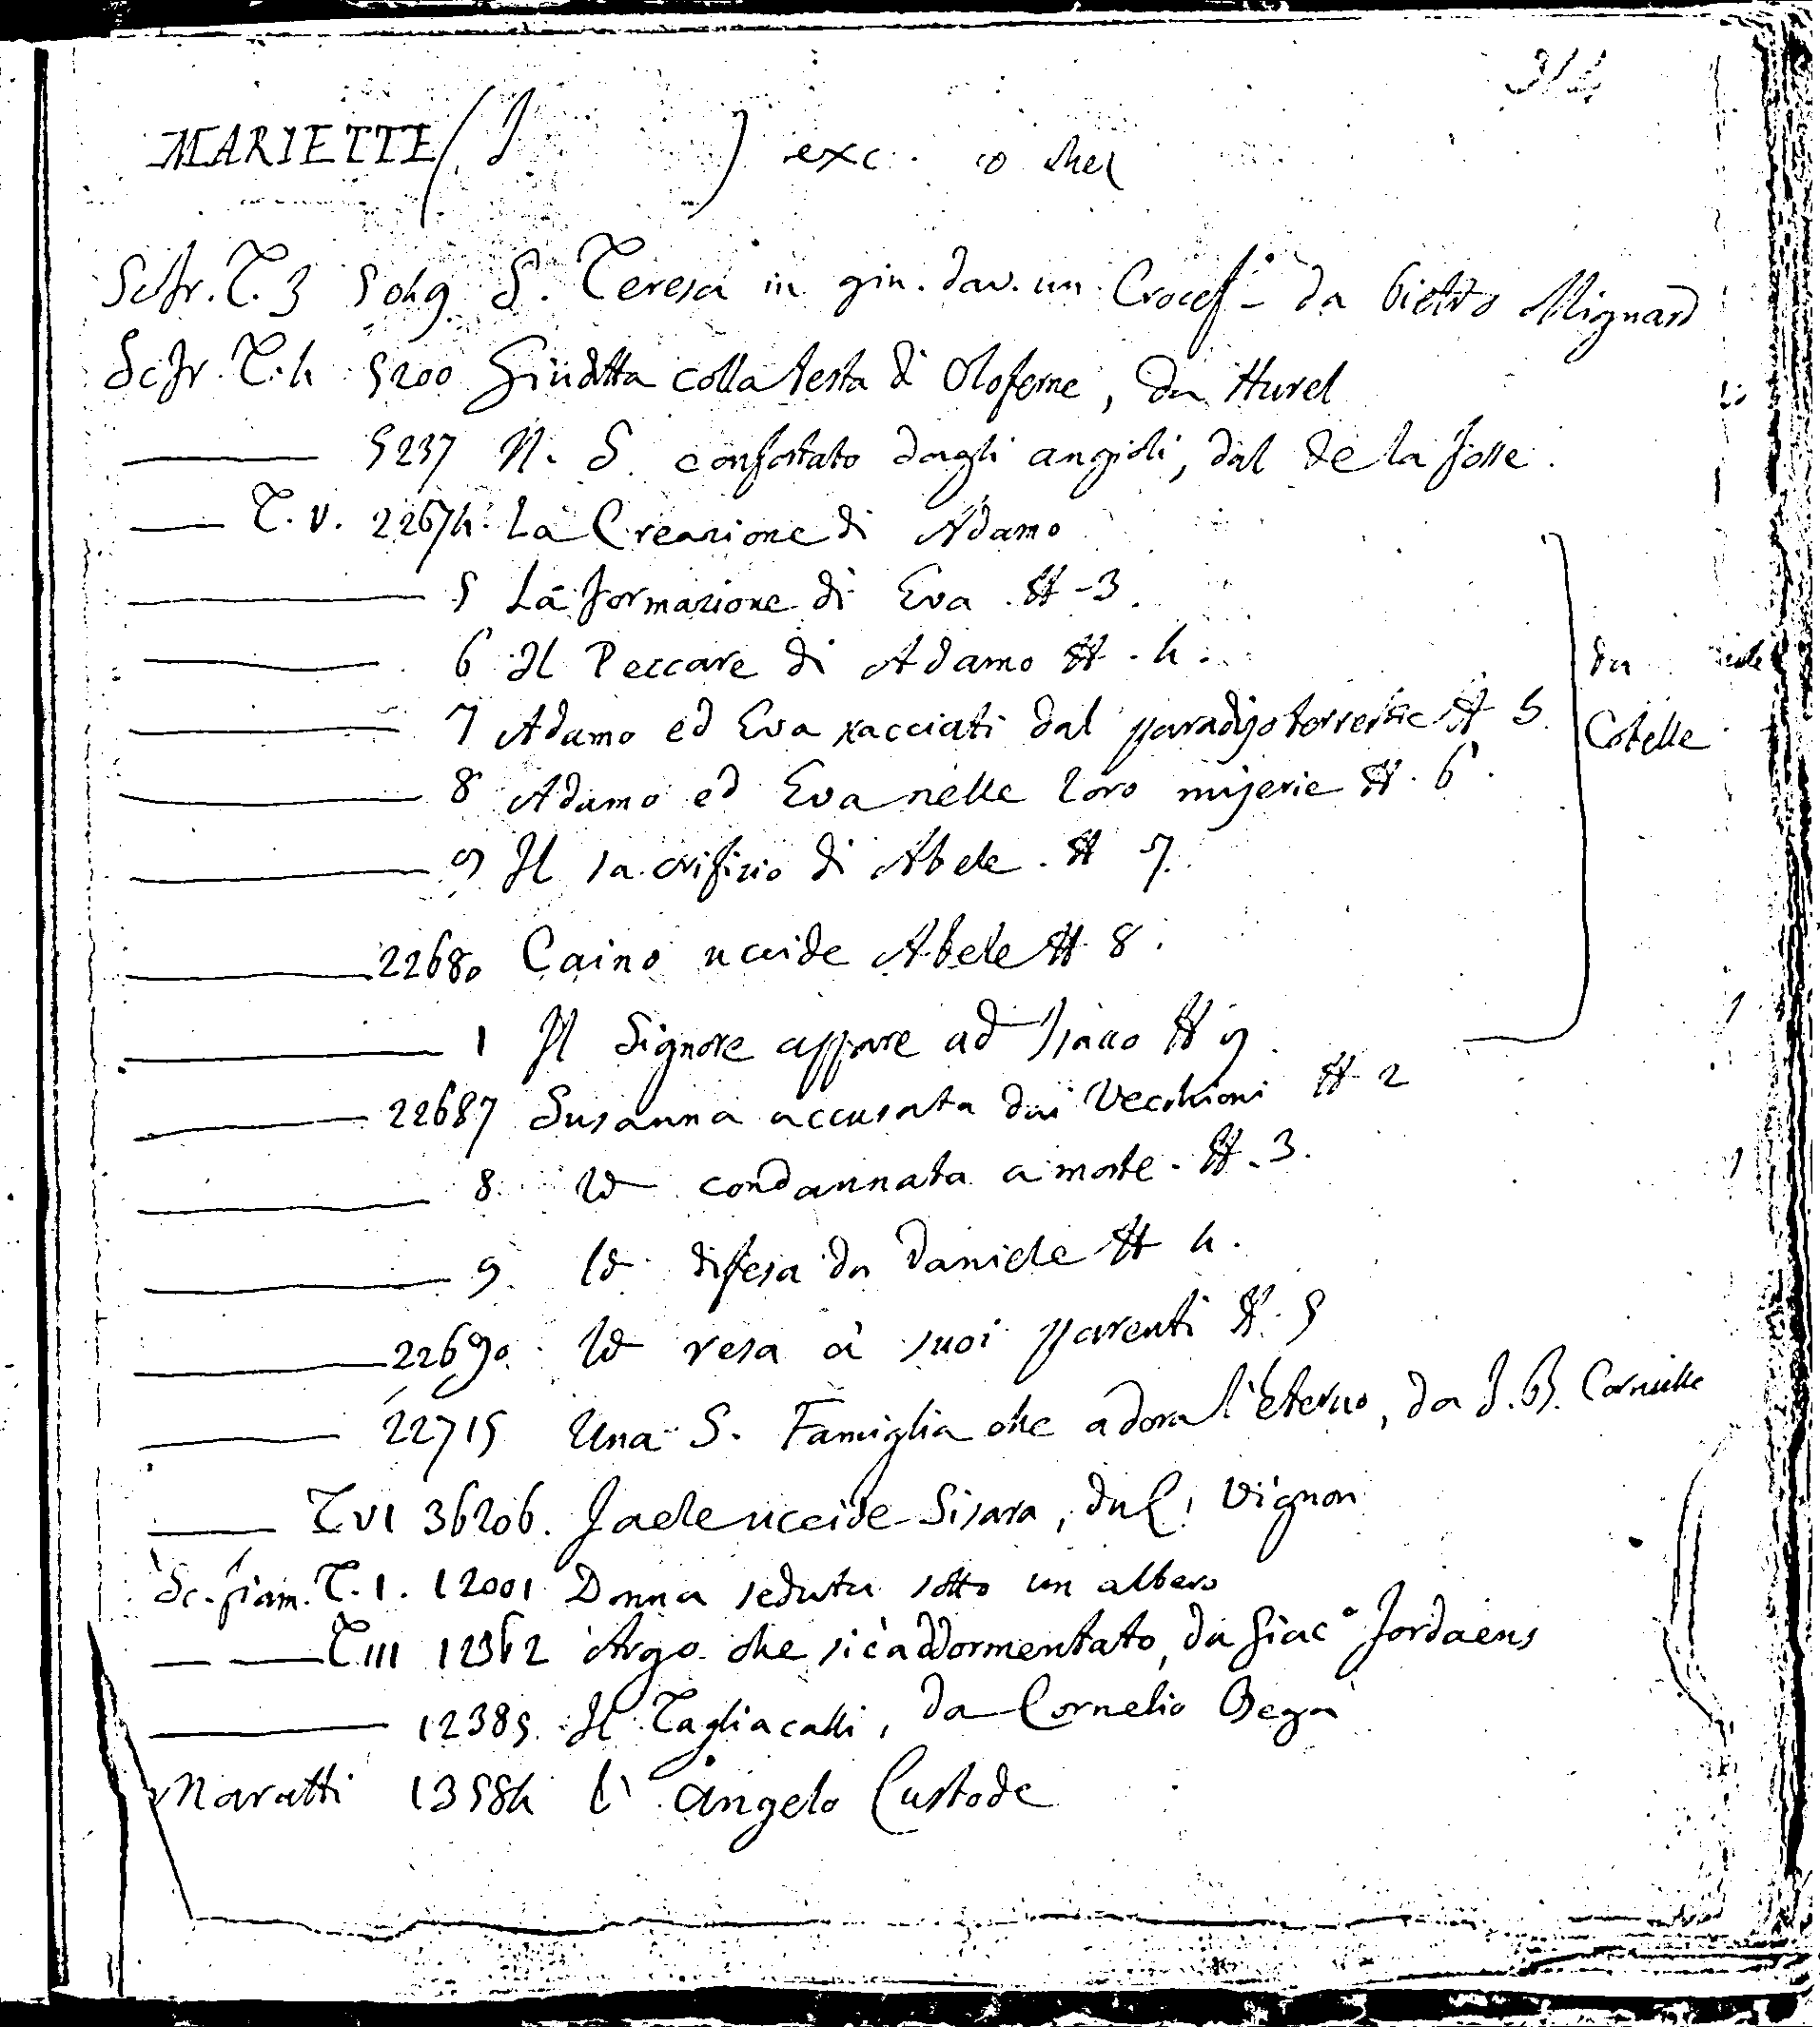 314
MARIETTE (J ) exc. o chel
Scfr. T. 3 5049 S. Teresa in gin. dav. un Crocef.o da Pietro Mignard
Scfr. T. 4 5200 Giuditta colla testa di Oloferne, da Huret
5237 N. S. confortato dagli angioli, dal De la fosse.
T. V. 22674. La Creazione di Adamo
5 La formazione di Eva # 3.
6 Il Peccare di Adamo # 4.
7 Adamo ed Eva xacciati dal paradiso terrestre # 5.
8 Adamo ed Eva nelle loro miserie # 6.
9 Il sacrifizio di Abele. # 7.
22680 Caino uccide Abele # 8.
da Cotelle
1 Il Signore appare ad Isacco # 9.
22687 Susanna accusata dai Vecchioni # 2
8. Id condannata a morte. # 3.
9. Id difesa da Daniele # 4.
22690. Id resa à suoi parenti # 5
22715 Una S. Famiglia che adora l'eterno, da J. B. Corneille
T VI 36206. Jaele uccide Sisara, da C. Vignon
Sc. fiam. T. I. 12001 Donna seduta sotto un albero
T III 12362 Argo che si è addormentato, da Giac.o Jordaens
12385. Il Tagliacalli, da Cornelio Bega
Maratti 13584 L' Angelo Custode